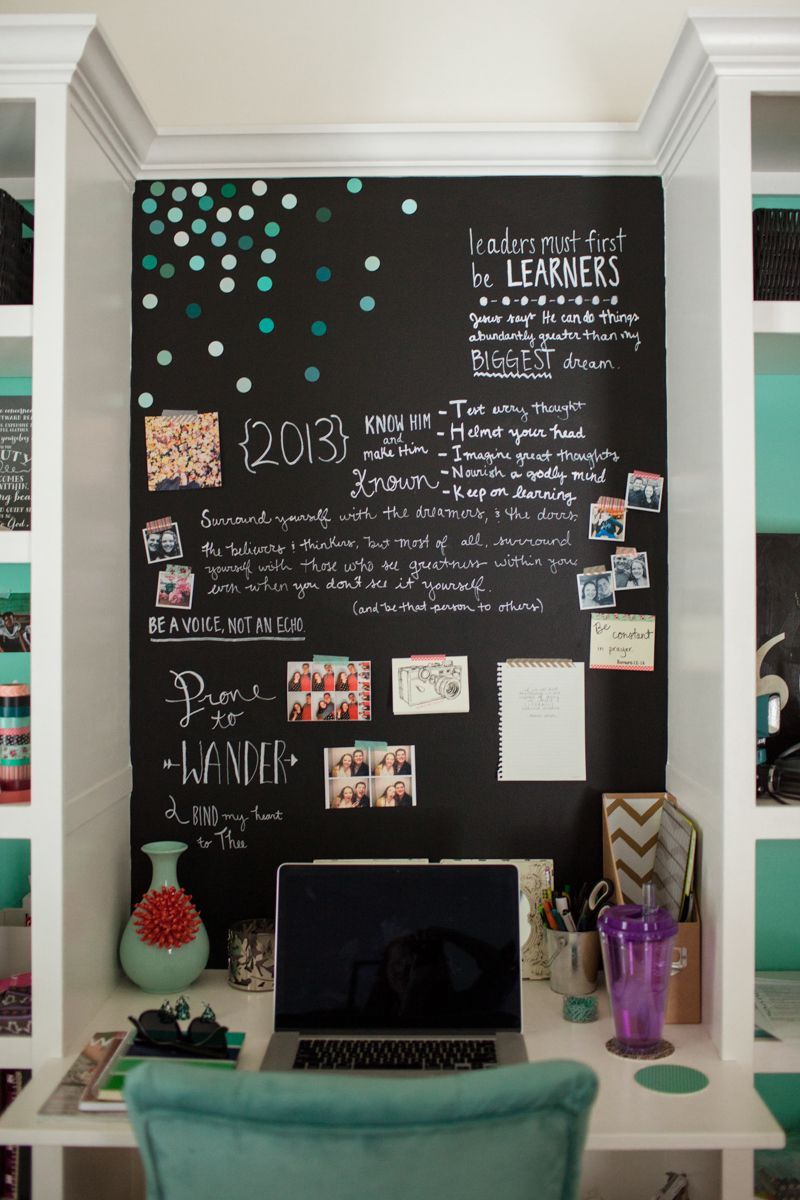 leaders must first
be LEARNERS
Jesus says He can do things
abundantly greater than my
BIGGEST dream.
{2013}
KNOW HIM
and
make Him
Known
- Test every thought
- Helmet your head
- Imagine great thoughts
- Nourish a godly mind
- Keep on learning
Surround yourself with the dreamers, & the doers
the believers & thinkers, but most of all, surround
yourself with those who see greatness within you
even when you don't see it yourself.
(and be that person to others)
BE A VOICE, NOT AN ECHO.
Be
constant
in prayer.
Romans 12:12
Prone
to
WANDER
BIND my heart
to Thee
COMES
WITHIN.